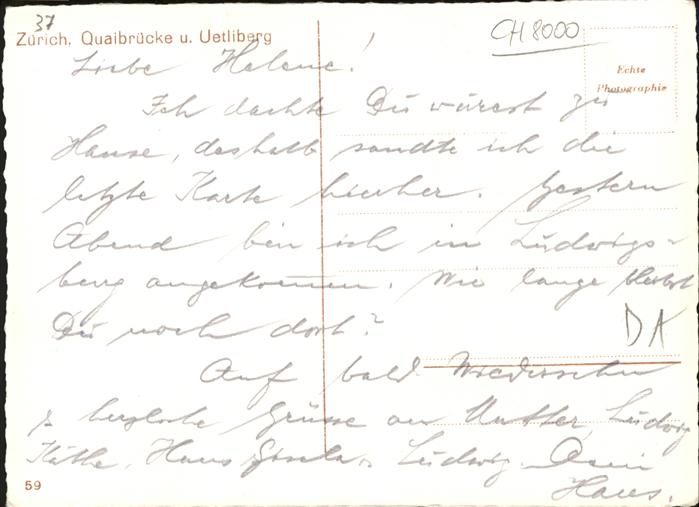 37
CH 8000
Zürich, Quaibrücke u. Uetliberg
Echte
Photographie
Liebe Helene!
Ich dachte Du wärest zu
Hause, deshalb sandte ich die
letzte Karte hierher. Gestern
Abend bin ich in Ludwigs-
berg angekommen. Wie lange bleibst
Du noch dort?
DA
Auf bald Wiedersehen
herzliche Grüsse an Mutter, Ludwig
Käthe, Hans Gisela, Ludwig. Dein
Hans.
59